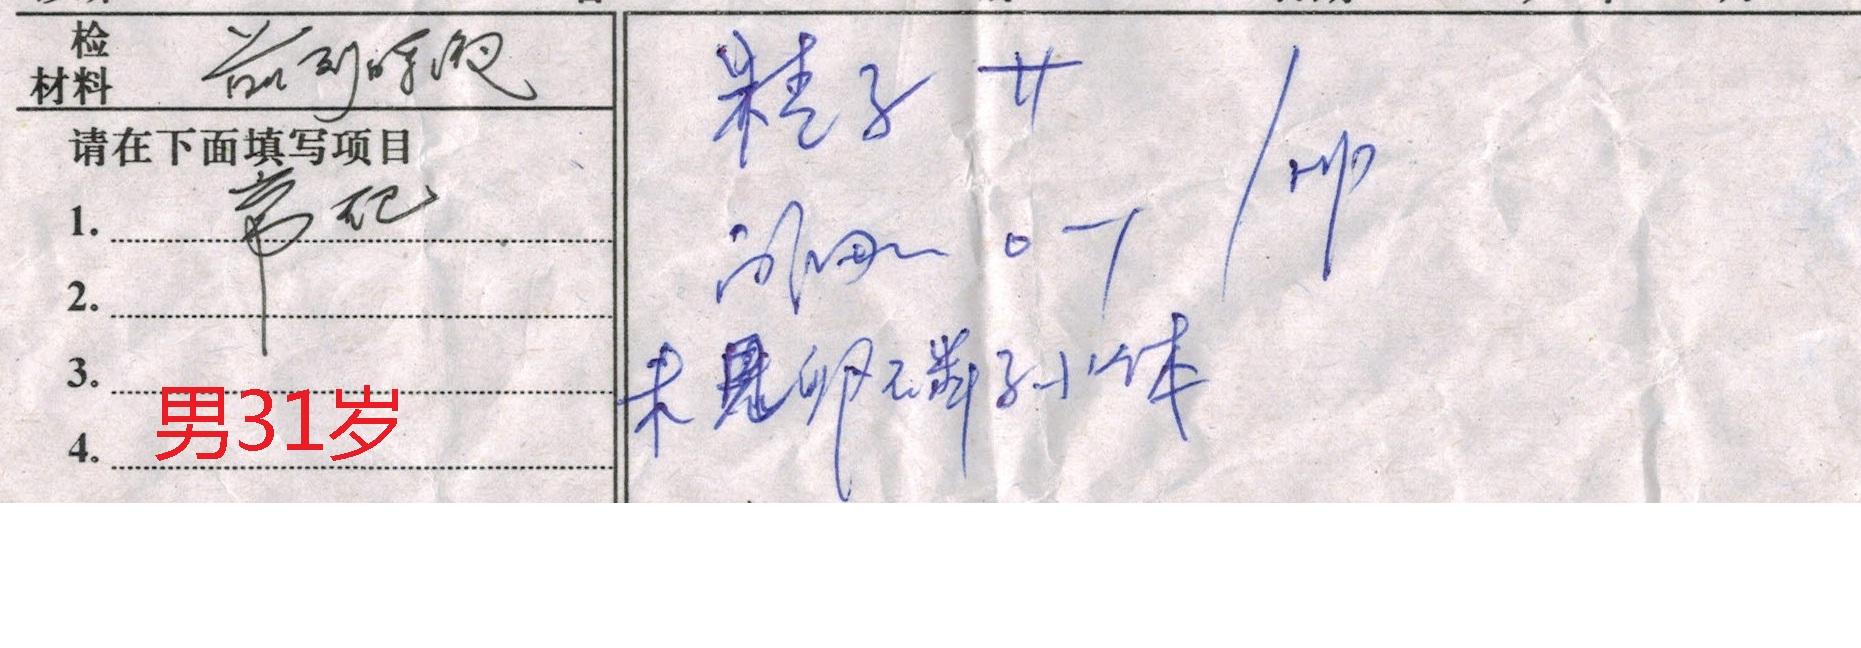 检
材料 前列腺液
请在下面填写项目
1. 常规
2.
3.
4.
男31岁
精子 廿 /HP
白细胞 0-1
未见卵磷子小体